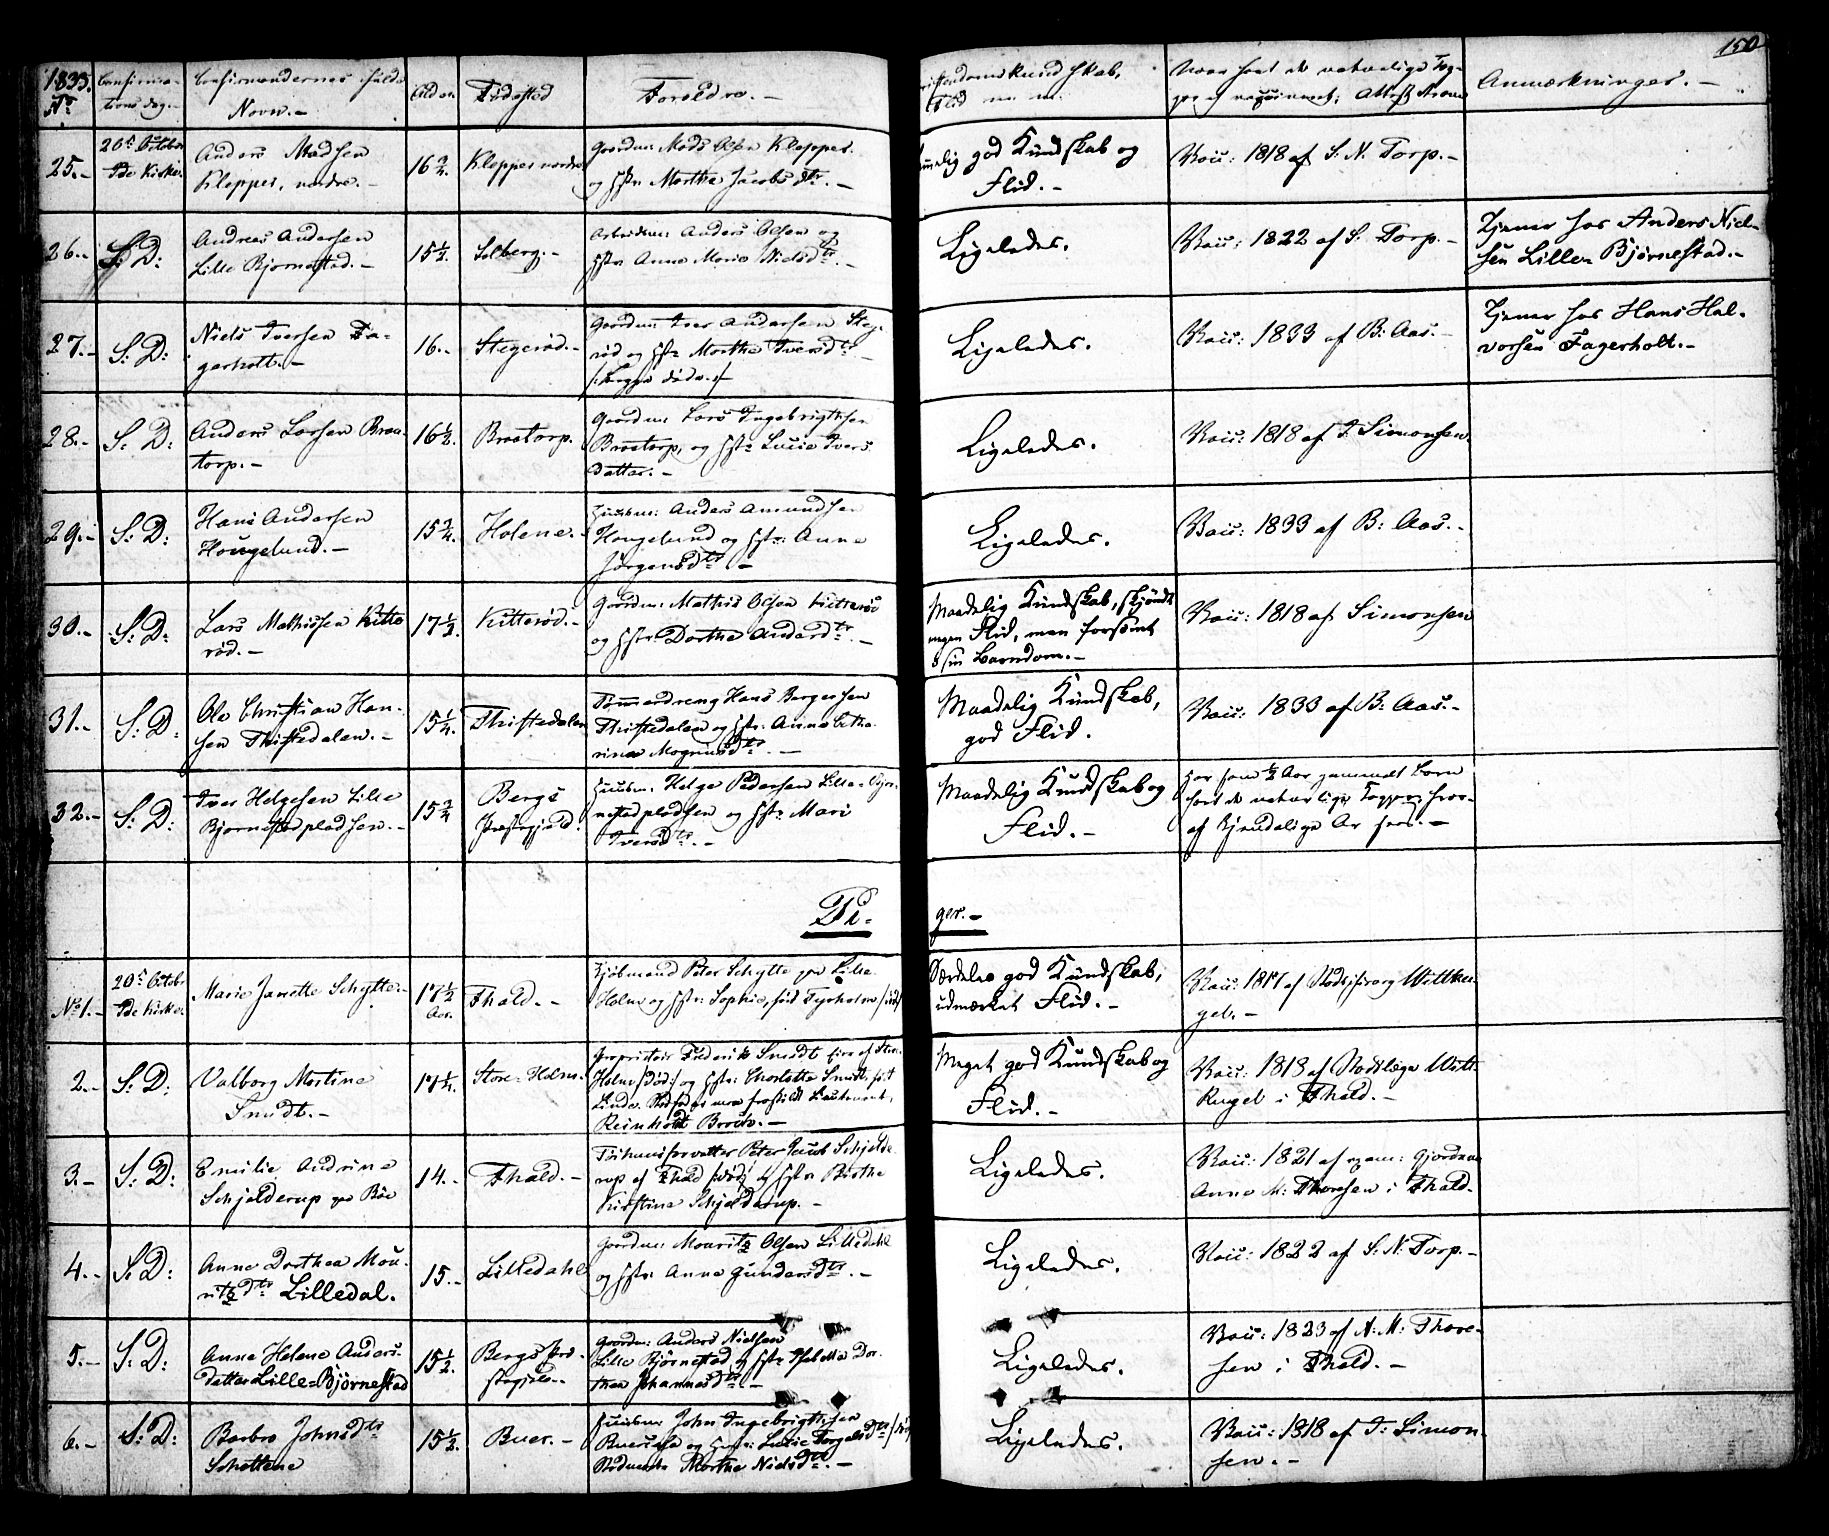 150
1833.
No
Confirma-
tions dag.
Confirmandernes fulde
Navn.
Alder.
Fødested
Forældre.
Christendomskundskab,
Flid m. m.
Anmærkninger.
25.
20de October
Ide Kirke.
Anders Madsen
Klepper, nordre.
16 2/4.
Klepper nordre
Gaardm: Mads Olsen Klepper
og Hstr: Marthe Jacobsdtr.
temmelig god Kundskab og
Flid.
Vacc: 1818 af S. N. Torp.
26.
S: D:
Andreas Andersen
Lille Bjørnestad.
15 1/2.
Solberg.
Arbeidsm: Anders Olsen og
Hstr: Anne Marie Nielsdtr.
Ligeledes.
Vacc: 1822 af S. Torp.
Tjener hos Anders Niel-
sen Lille Bjørnestad.
27.
S: D:
Niels Iversen Fa-
gerholt.
16.
Stegerød.
Gaardm: Iver Andersen Steg-
rød og Hstr: Marthe Iversdtr
/: begge døde :/
Ligeledes.
Vacc: 1833 af B: Aas.
Tjener hos Hans Hal-
vorsen Fagerholt.
28.
S: D:
Anders Larsen Braa-
torp.
16 1/2.
Braatorp.
Gaardm: Lars Ingebrigthsen
Braatorp, og Hstr: Lucie Ivers
datter.
Ligeledes.
Vacc: 1818 af T. Simonsen.
29.
S: D:
Hans Andersen
Hougelund.
15 2/4.
Holene.
Huusm: Anders Amundsen
Hougelund og Hstr: Anne
Jørgensdtr.
Ligeledes.
Vacc: 1833 af B: Aas.
30.
S: D:
Lars Mathissen Kitte
rød.
17 1/2.
Kitterød.
Gaardm: Mathis Olsen Kitterød
og Hstr: Dorthe Andersdtr.
Maadelig Kundskab, skjøndt
megen Flid, men forsømt
i sin Barndom.
Vacc: 1818 af Simonsen
31.
S: D:
Ole Christian Han-
sen Thistedalen.
15 1/4.
Thistedalen
Tømmerdreng Hans Børgersen
Thistedalen og Hstr: Anne Catha-
rine Magnusdtr.
Maadelig Kundskab,
god Flid.
Vacc: 1833 af B: Aas.
32.
S: D:
Iver Helgesen Lille
Bjørnestadpladsen.
15 2/4
Bergs
Præstegjeld.
Huusm: Helge Pedersen Lille-Bjør-
nestadpladsen og Hstr: Mari
Iversdtr.
Maadelig Kundskab og
Flid.
Har som 1/2 Aar gammelt Barn
havt de naturlige Kopper, hvor-
af kjendelige Ar sees.
Pi-
ger.
No 1.
20de October
Ide Kirke.
Marie Janette Schytte.
17 1/2
Aar.
Fhald.
Kjøbmand Peter Schytte paa Lille
Holm og Hstr: Sophie, født Tyrholm
Særdeles god Kundskab,
udmærket Flid.
Vacc: 1817 af Wittku-
gel.
2.
S: D:
Valborg Martine
Smidt.
17 1/4.
Store-Holm.
Proprietair Frederik Smidt
Holm /:død:/ og Hstr: Charlotte Smidt, født
Linde.
Reinholdt
Meget god Kundskab og
Flid.
Vacc: 1818 af Stadslæge Witt-
kugel i Fhald.
3.
S: D:
Emilie Andrine
Schjelderup paa Røe
14.
Fhald.
Peter Juul Schjelde-
rup af Fhald /:død:/ og Hstr: Birthe
Kirstine Schjelderup.
Ligeledes.
Vacc: 1821 af exam: Gjordem
Anne M: Thoresen i Fhald.
4.
S: D:
Anne Dorthea Mou-
ritzdtr Lilledal.
15.
Lilledahl
Gaardm: Mouritz Olsen Lilledahl
og Hstr: Anne Gundersdtr.
Ligeledes.
Vacc: 1822 af S. N. Torp.
5.
S: D:
Anne Helene Anders-
datter Lille-Bjørnestad
15 1/2.
Bergs Præ-
stegjeld.
Gaardm: Anders Nielsen
Lille Bjørnestad og Hstr: Isabella Dor-
thea Johannesdtr.
Ligeledes.
Vacc: 1823 af A. M: Thore-
sen i Fhald.
6.
S: D:
Barbro Johnsdtr
Schottene
15 1/2.
Buer.
Huusm: John Ingebrigthsen
og Hstr: Lucie Torgelsdtr
Marthe Nielsdtr.
Ligeledes.
Vacc: 1818 af T: Simon-
sen.